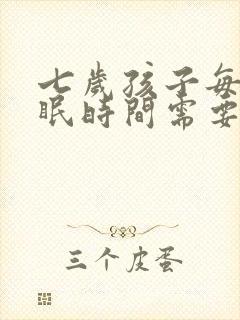 七歲孩子每
眠時間需要
三个皮蛋